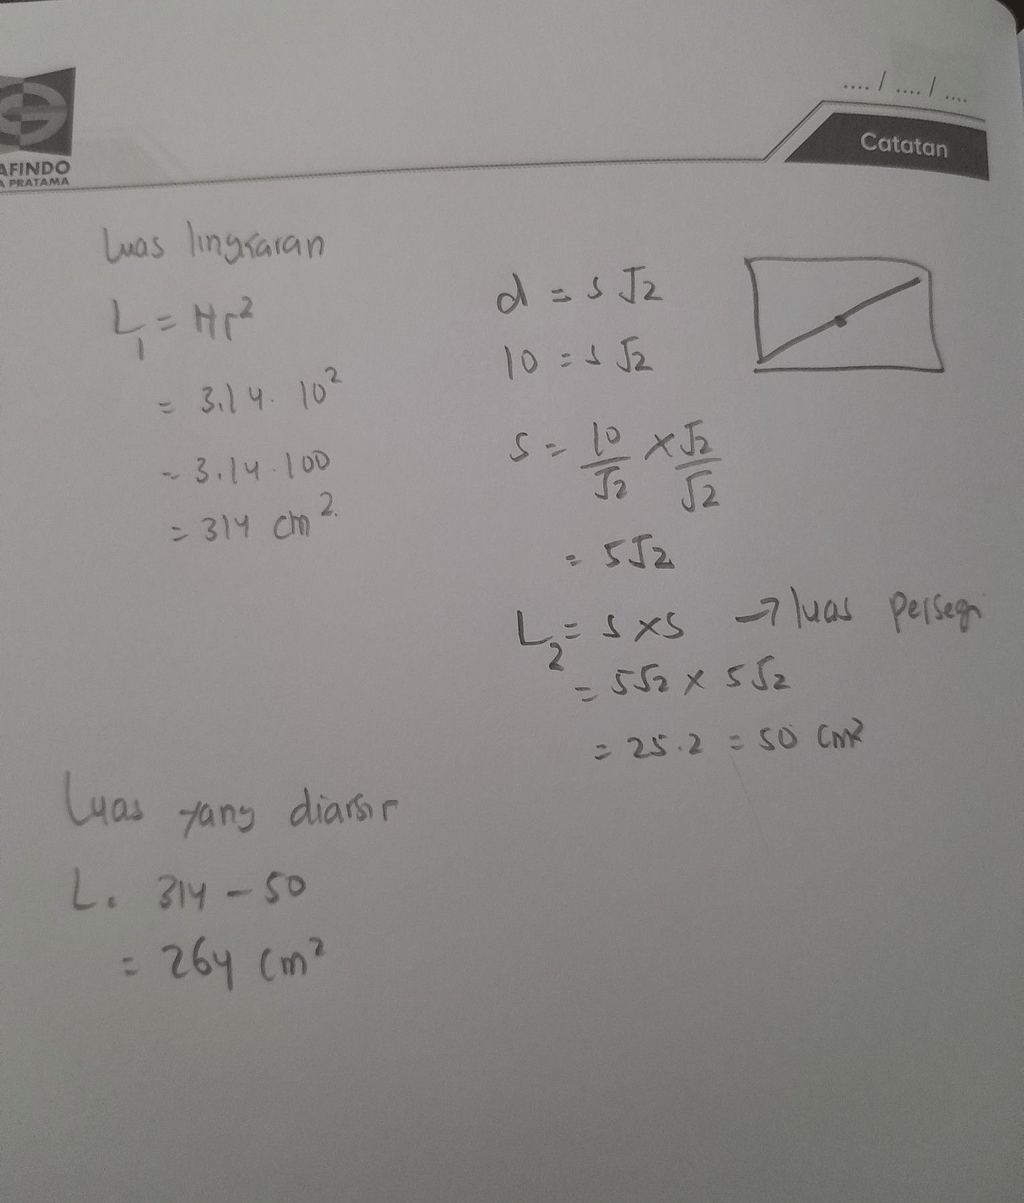 .... / .... / ....
Catatan
AFINDO
A PRATAMA
Luas lingkaran
L₁ = πr²
= 3.14 . 10²
= 3.14 . 100
= 314 cm².
d = s √2
10 = s √2
s = 10/√2 × √2/√2
= 5√2
L₂ = s × s → luas persegi
= 5√2 × 5√2
= 25.2 = 50 cm²
Luas yang diarsir
L = 314 - 50
= 264 cm²